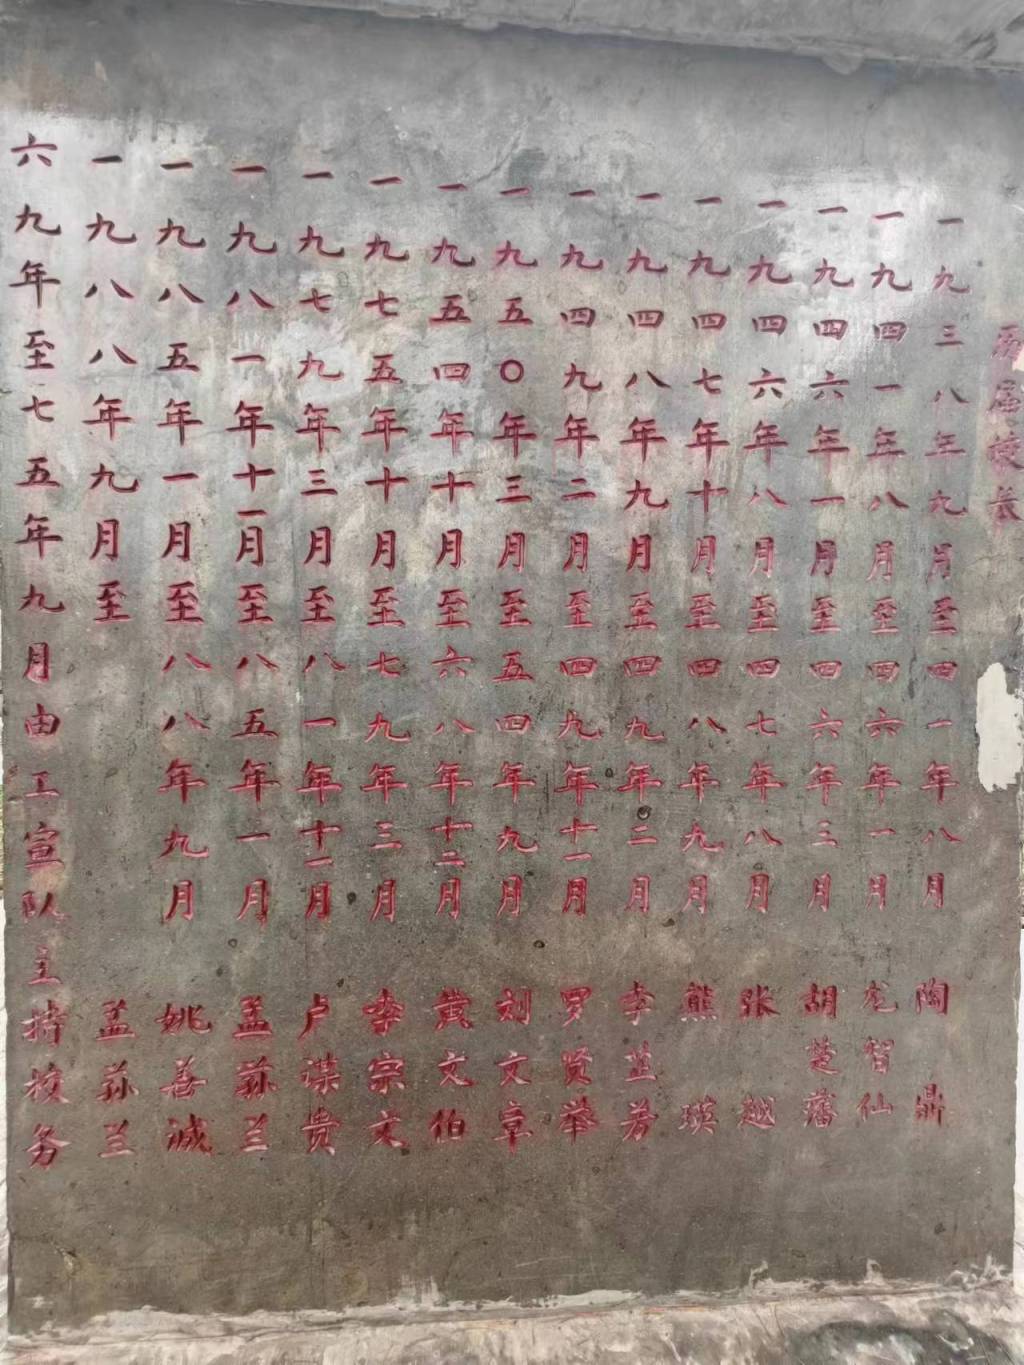 历届校长
一九三八年九月至四一年八月 陶鼎
一九四一年八月至四六年一月 龙智仙
一九四六年一月至四六年三月 胡楚藩
一九四六年八月至四七年八月 张越
一九四七年十月至四八年九月 熊瑛
一九四八年九月至四九年二月 李芷芳
一九四九年二月至四九年十一月 罗贤举
一九五〇年三月至五四年九月 刘文章
一九五四年十月至六八年十二月 黄文伯
一九七五年十月至七九年三月 李宗文
一九七九年三月至八一年十一月 卢谋贵
一九八一年十一月至八五年一月 孟荪兰
一九八五年一月至八八年九月 姚善诚
一九八八年九月至 孟荪兰
六九年至七五年九月由工宣队主持校务